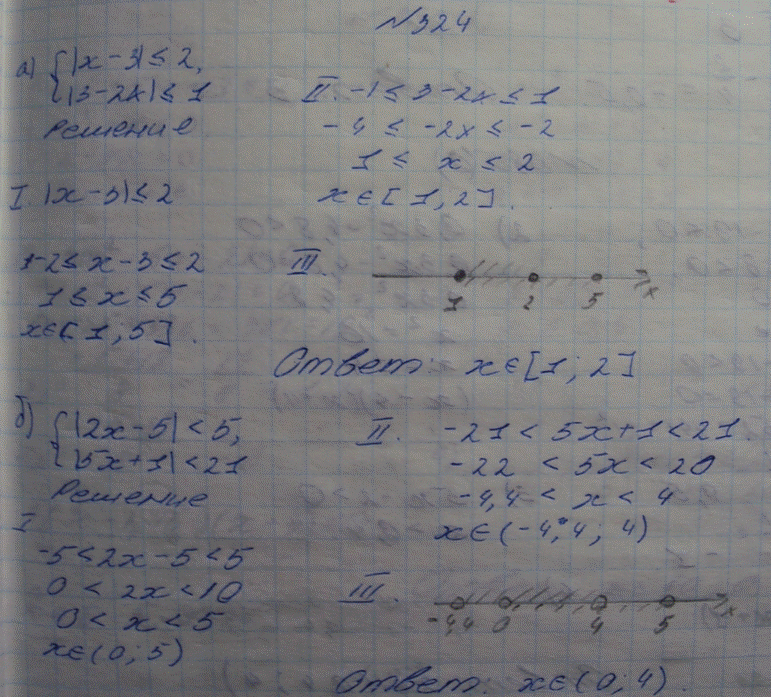 №324
а) { |x-3| ≤ 2,
{ |3-2x| ≤ 1
Решение
I. |x-3| ≤ 2
-2 ≤ x-3 ≤ 2
1 ≤ x ≤ 5
x∈[1;5].
II. -1 ≤ 3-2x ≤ 1
-4 ≤ -2x ≤ -2
1 ≤ x ≤ 2
x∈[1,2].
III
1 2 5 x
Ответ: x∈[1;2]
б) { |2x-5| < 5,
{ |5x+1| < 21
Решение
I
-5 < 2x-5 < 5
0 < 2x < 10
0 < x < 5
x∈(0;5)
II. -21 < 5x+1 < 21.
-22 < 5x < 20
-4,4 < x < 4
x∈(-4,4; 4)
III.
-4,4 0 4 5 x
Ответ: x∈(0;4).